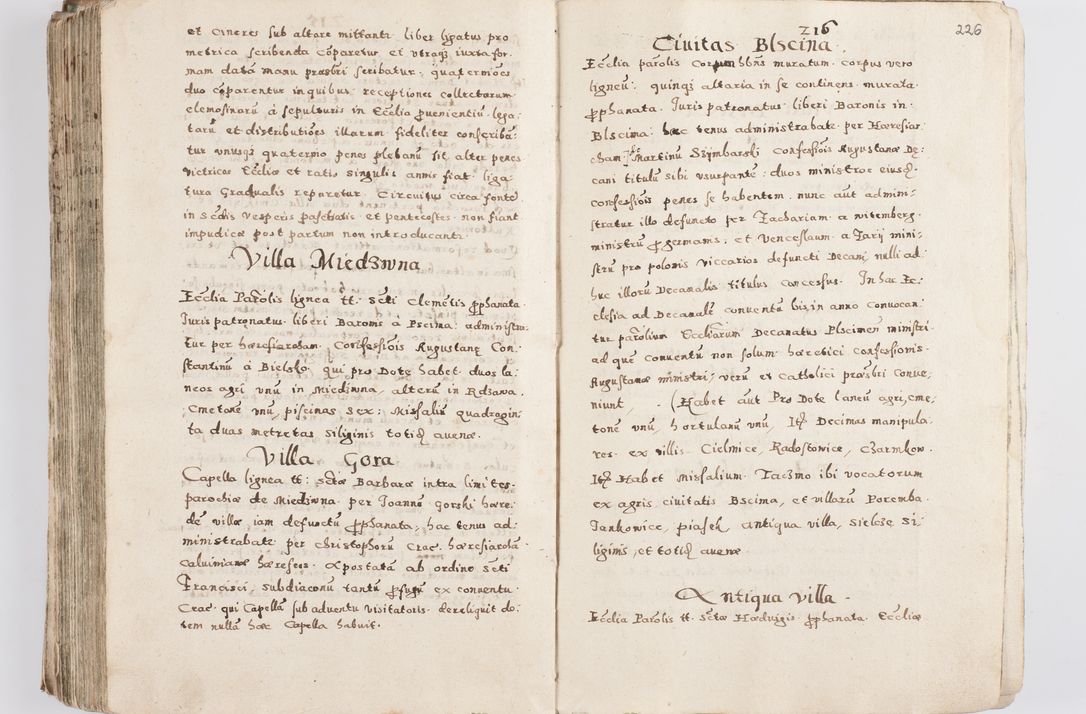 et cineres sub altare mittantr. liber ligatus pro
metrica scribenda cōparetur et utraqꝫ iuxta for
mam datā manu præsbri scribatur, quaterniōes
duo cōparentur in quibus receptiones collectarum
elemosinarū à sepulturis in Ecclia ꝓuenientiū lega
tarū et distributiōes illarum fideliter conscribā
tur unusqꝫ quaternio penes plebanū sit alter penes
victricos Eccliæ et ratis singulis annis fiat. liga
tura Gradualis reparetur. Circuitus circa fontē
in Sēdis Vesperis paschatis et pentecostes non fiant
impudicæ post partum non introducantr.
Villa Miedzwna
Ecclia Parolis lignea tt: Scti Clemētis ꝓphanata
Juris patronatus liberi Baronis à Pscima: administra
tur per hæresiarcham Confessiōis Augustanę Con
stantinū à Bielsko qui pro Dote habet duos la
neos agri unū in Miedzwna alterū in Rdzawa.
Cmetonē unū, piscinas sex: Missaliū quadragin
ta duas metretas siliginis totidē avenæ.
Villa Gora
Capella lignea tt: Sctæ Barbaræ intra limites
parochiæ de Miedzwna per Joannē Gorski hære
dē villæ iam defunctū ꝓphanata, hac tenus ad
ministrabatr per Christophorū Crac: hæresiarchā
Calvinianæ hæreseos. Apostatā ab ordine Scti
Francisci, subdiaconū tantū ꝓfugū ex conventu
Crac: qui Capellā sub adventu visitatoris dereliquit do
tem nullā hæc Capella habuit.
216
226
Civitas Blscina.
Ecclia parolis Corpum hbns muratum. corpus vero
ligneū: quinqꝫ altaria in se continens. murata
ꝓphanata. Juris patronatus liberi Baronis in
Blscina: hac tenus administrabatr per Hæresiar
cham Martinū Szymbarski Confessiōis Augustanæ De
cani titulū sibi usurpantē: duos ministros eiusdē
confessiōis penes se habentem. nunc aūt admini
stratur illo defuncto per Zachariam à Witemberg
ministrū ꝓ germanis: et Venceslaum à Zarij mini
strū pro polonis viccarios defuncti Decani, nulli ad
huc illorū Decanalis titulus concessus. In hac Ec
clesia ad Decanalē conventū bis in anno convocan
tur parolium Eccliarum Decanatus Plscinen ministri
ad quē conventū non solum hæretici confessionis
Augustanæ ministri, verū et Catholici præsbri conve,
niunt. (Habet aūt Pro Dote laneū agri, cme,
tonē unū, hortulanū unū, Itē Decimas manipula
res ex villis Cielmice, Radostowice, Czarnkow.
Itē Habet Missalium Taczmo ibi vocatorum
ex agris civitatis Bscima, et villarū Poremba
Jankowice, Piasek, antiqua villa, Sielcze si
liginis, et totidē avenæ
Antiqua Villa.
Ecclia Parolis tt. Sctæ Hædvigis ꝓphanata. Eccliæ